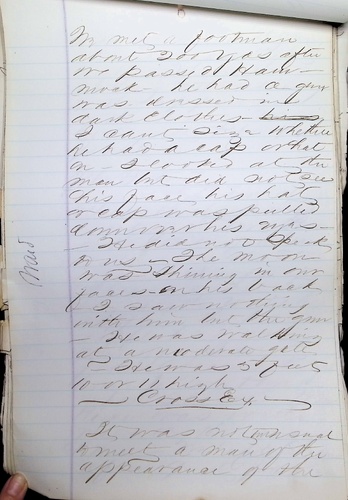 We met a footman
about 200 yds after
we passed Ham-
mock - he had a gun
was dressed in
dark clothes -
I cant say whether
he had a cap or hat
on - I looked at the
man but did not see
his face, his hat
or cap was pulled
down over his
- He did not speak
to us - The moon
was shining in our
faces - on his back
- I saw nothing
with him but the gun
- He was walking
at a moderate gate
- He was 5 feet
10 or 11 high
- Cross Ex.
It was not unusual
to meet a man of the
appearance of the